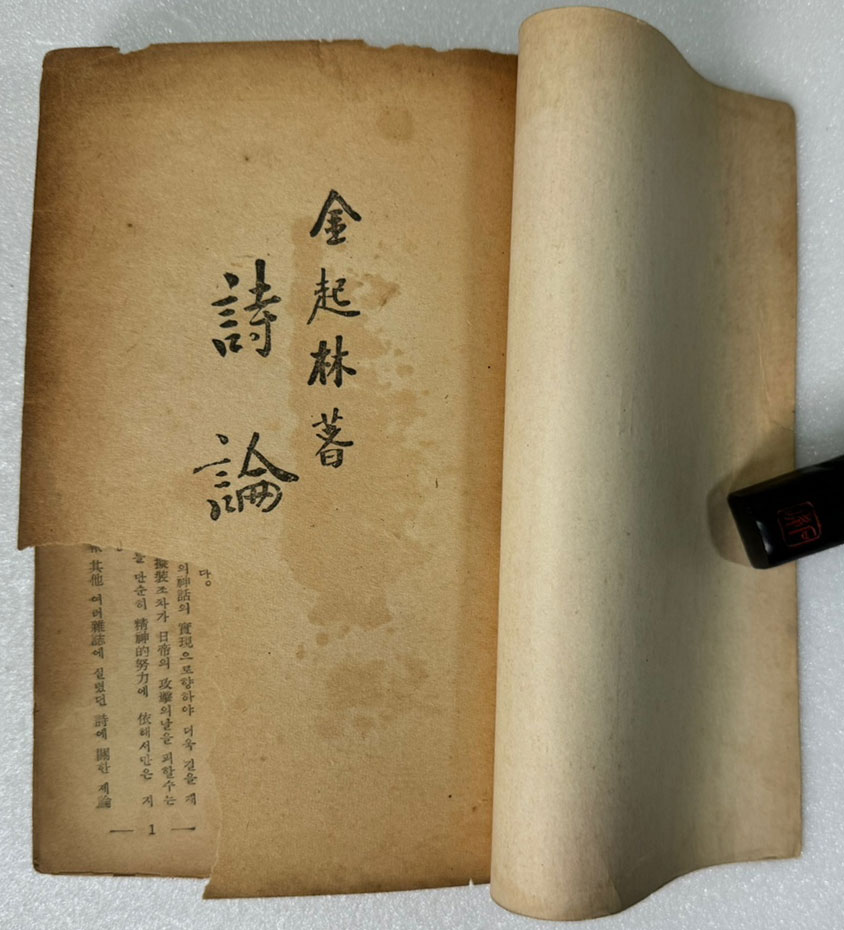 金起林著
詩論
다。
의神話의 實現으로향하야 더욱 길을 재
擬裝조차가 日帝의 攻擊의날을 피할수는
단순히 精神的努力에 依해서만은 지
其他 여러雜誌에 실렸던 詩에 關한 제論
— 1 —